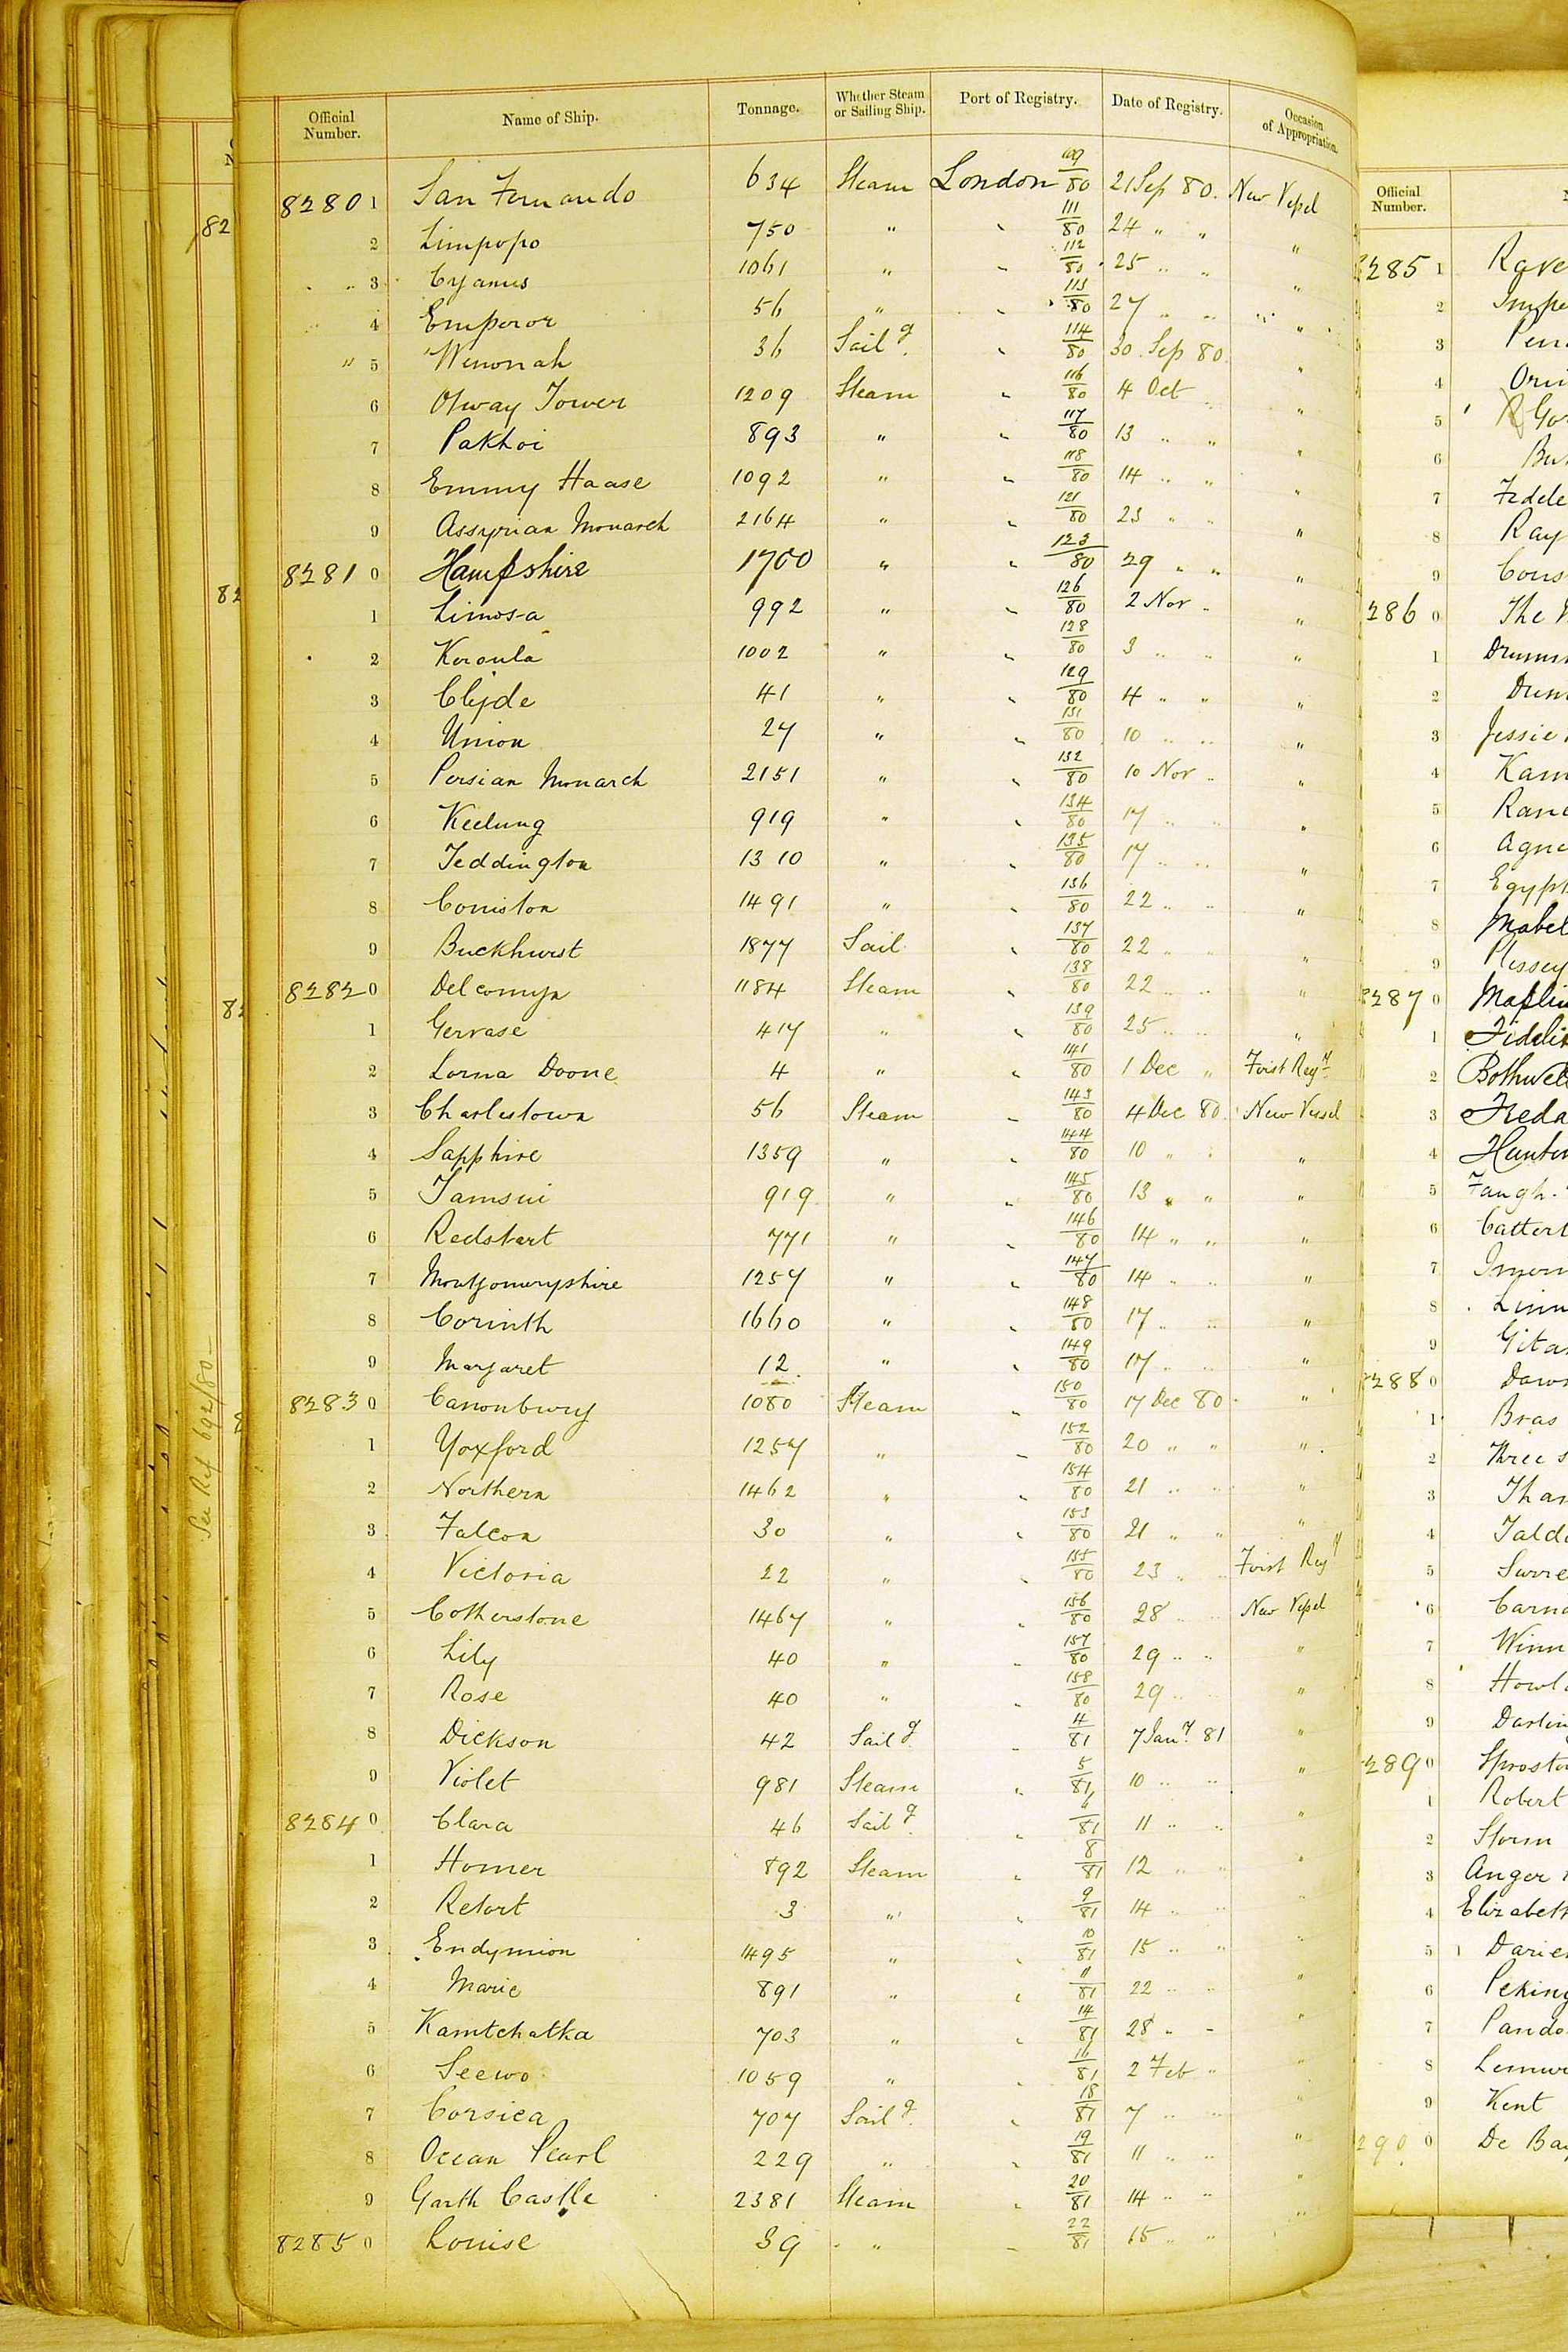 Official Number. Name of Ship. Tonnage. Whether Steam or Sailing Ship. Port of Registry. Date of Registry. Occasion of Appropriation.
82801 San Fernando 634 Steam London 109/80 21 Sep 80. New Vessel
2 Limpopo 750 " " 111/80 24 " " "
3 Cyanus 1061 " " 112/80 25 " " "
4 Emperor 56 " " 113/80 27 " " "
" 5 Wenonah 36 Sailg. " 114/80 30 Sep 80 "
6 Otway Tower 1209 Steam " 116/80 4 Oct " "
7 Pakhoi 893 " " 117/80 13 " " "
8 Emmy Haase 1092 " " 118/80 14 " " "
9 Assyrian Monarch 2164 " " 121/80 23 " " "
82810 Hampshire 1700 " " 123/80 29 " " "
1 Limosa 992 " " 126/80 2 Nov " "
2 Koroula 1002 " " 128/80 3 " " "
3 Clyde 41 " " 129/80 4 " " "
4 Union 27 " " 131/80 10 " " "
5 Persian Monarch 2151 " " 132/80 10 Nov " "
6 Keelung 919 " " 134/80 17 " " "
7 Teddington 1310 " " 135/80 17 " " "
8 Coniston 1491 " " 136/80 22 " " "
9 Buckhurst 1877 Sail " 137/80 22 " " "
82820 Delcomyn 1184 Steam " 138/80 22 " " "
1 Gervase 417 " " 139/80 25 " " "
2 Lorna Doone 4 " " 141/80 1 Dec " First Regy
3 Charlestown 56 Steam " 143/80 4 Dec 80. New Vessel
4 Sapphire 1359 " " 144/80 10 " " "
5 Tamsui 919 " " 145/80 13 " " "
6 Redstart 771 " " 146/80 14 " " "
7 Montgomeryshire 1257 " " 147/80 14 " " "
8 Corinth 1660 " " 148/80 17 " " "
9 Margaret 12 " " 149/80 17 " " "
82830 Canonbury 1080 Steam " 150/80 17 Dec 80 "
1 Yoxford 1257 " " 152/80 20 " " "
2 Northern 1462 " " 154/80 21 " " "
3 Falcon 30 " " 153/80 21 " " "
4 Victoria 22 " " 155/80 23 " " First Regy
5 Cotherstone 1467 " " 156/80 28 " " New Vessel
6 Lily 40 " " 157/80 29 " " "
7 Rose 40 " " 158/80 29 " " "
8 Dickson 42 Sailg " 4/81 7 Jany. 81 "
9 Violet 981 Steam " 5/81 10 " " "
82840 Clara 46 Sailg " 6/81 11 " " "
1 Homer 892 Steam " 8/81 12 " " "
2 Retort 3 " " 9/81 14 " " "
3 Endymion 1495 " " 10/81 15 " " "
4 Marie 891 " " 11/81 22 " " "
5 Kamtchatka 703 " " 14/81 28 " " "
6 Seewo 1059 " " 16/81 2 Feb " "
7 Corsica 707 Sailg. " 18/81 7 " " "
8 Ocean Pearl 229 " " 19/81 11 " " "
9 Garth Castle 2381 Steam " 20/81 14 " " "
82850 Louise 39 " " 22/81 15 " " "
See Ref 692/80
Official Number.
2851
2
3
4
5
6
7
8 Ray
9
2860 The
1
2
3 Jessie
4
5
6
7
8 Mabel
9
2870
1
2
3 Freda
4
5
6
7
8
9
2880
1 Bras
2 Three
3
4
5
6
7
8
9
2890
1 Robert
2 Storm
3 Anger
4
5
6
7
8
9 Kent
290 0 De